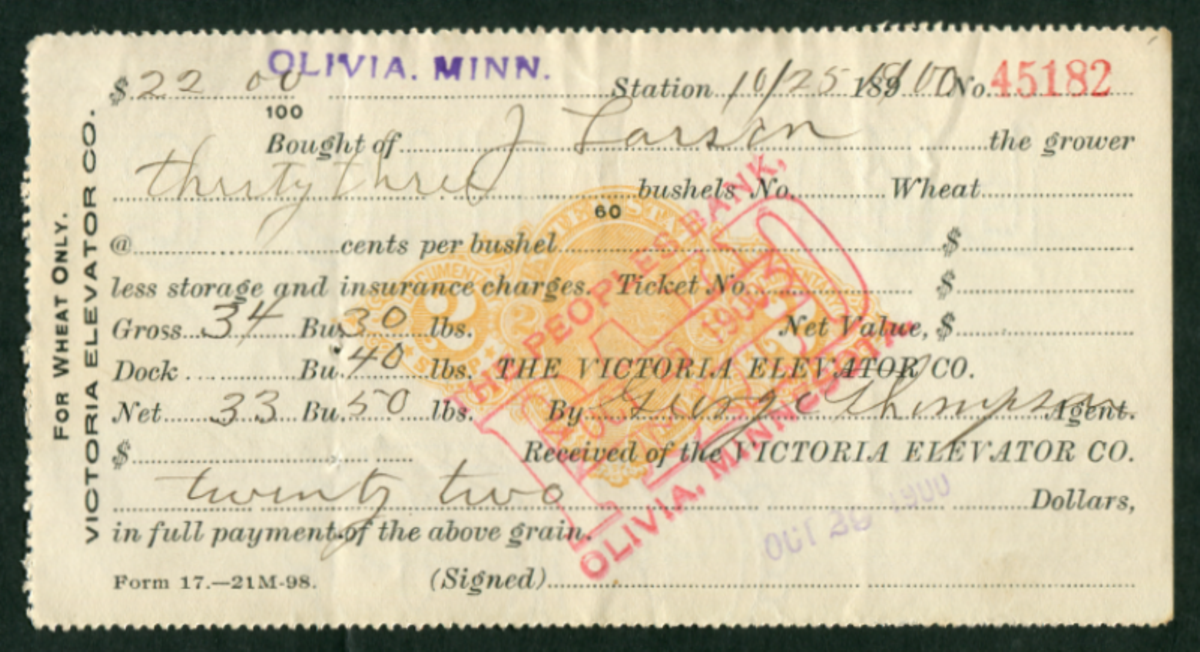 OLIVIA. MINN.
$ 22 00/100 Station 10/25 189 1900 No. 45182
Bought of J Larson the grower
thirty three 60 bushels No. Wheat
@ cents per bushel $
less storage and insurance charges. Ticket No. $
Gross 34 Bu. 30 lbs. Net Value, $
Dock Bu. 40 lbs. THE VICTORIA ELEVATOR CO.
Net 33 Bu. 50 lbs. By George Thompson Agent.
$ Received of the VICTORIA ELEVATOR CO.
twenty two Dollars,
in full payment of the above grain.
Form 17.—21M-98. (Signed)
FOR WHEAT ONLY.
VICTORIA ELEVATOR CO.
THE PEOPLES BANK,
PAID
1900
OLIVIA, MINNESOTA
OCT 26 1900
2
2